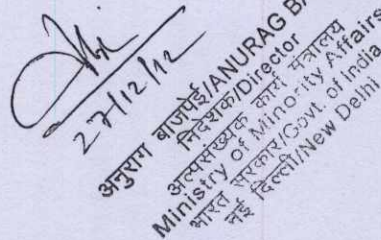 27/12/12
अनुराग बाजपेई/ANURAG
निदेशक/Director
अल्पसंख्यक कार्य मंत्रालय
Ministry of Minority Affairs
भारत सरकार/Govt. of India
नई दिल्ली/New Delhi